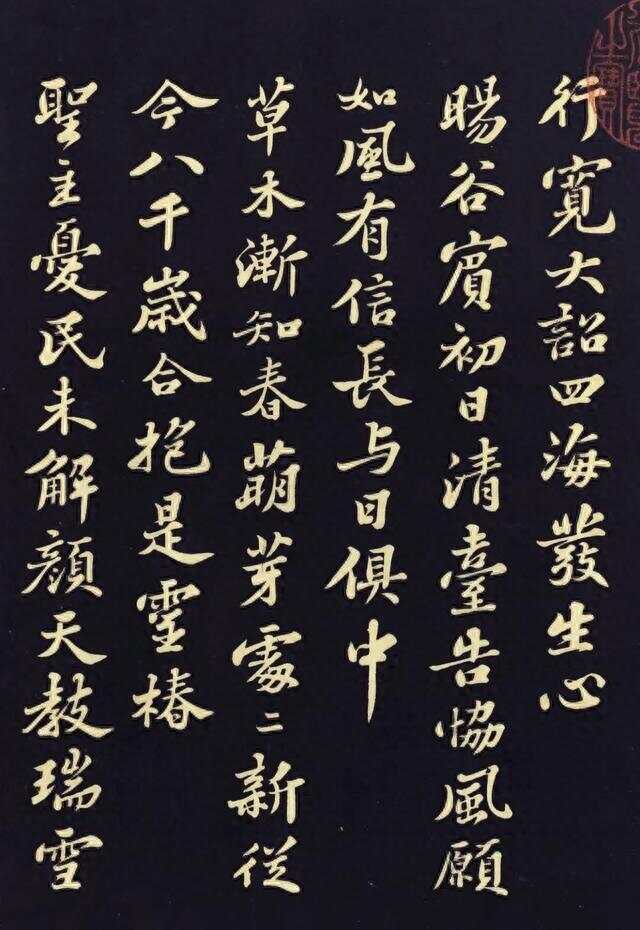 行寛大詔四海發生心
暘谷賓初日清臺告協風願
如風有信長与日俱中
草木漸知春萌芽處二新從
今八千歲合抱是靈椿
聖主憂民未解顏天教瑞雪